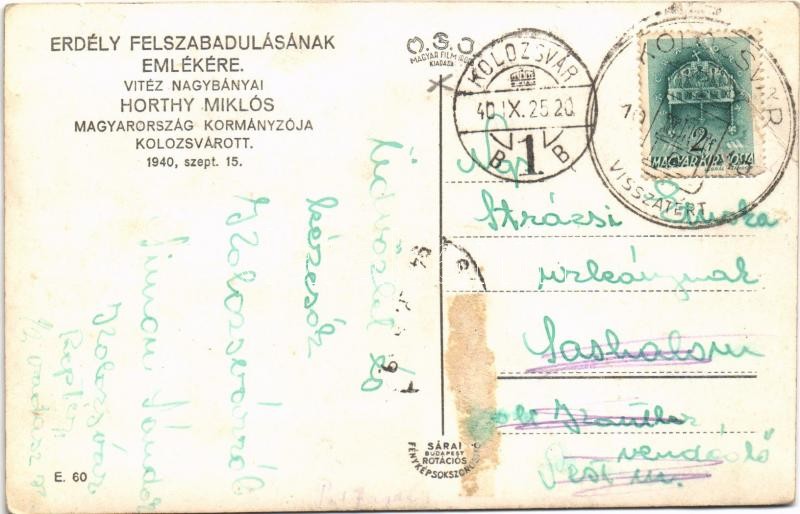 ERDÉLY FELSZABADULÁSÁNAK
EMLÉKÉRE.
VITÉZ NAGYBÁNYAI
HORTHY MIKLÓS
MAGYARORSZÁG KORMÁNYZÓJA
KOLOZSVÁROTT.
1940, szept. 15.
O.G.I.
MAGYAR FILM IRODA
KIADÁSA
KOLOZSVÁR
40.IX.25.20
B 1. B
KOLOZSVÁR
VISSZATÉRT
2
MAGYAR KIR. POSTA
Üdvözlet és
kézcsók
Kolozsvárról
Simon Sándor
Kolozsvár
Ngs.
Strázsi Emőke
urleánynak
Sashalom
vendéglő
Pest m.
SÁRAI
BUDAPEST
ROTÁCIÓS
FÉNYKÉPSOKSZOROSÍTÓ
E. 60